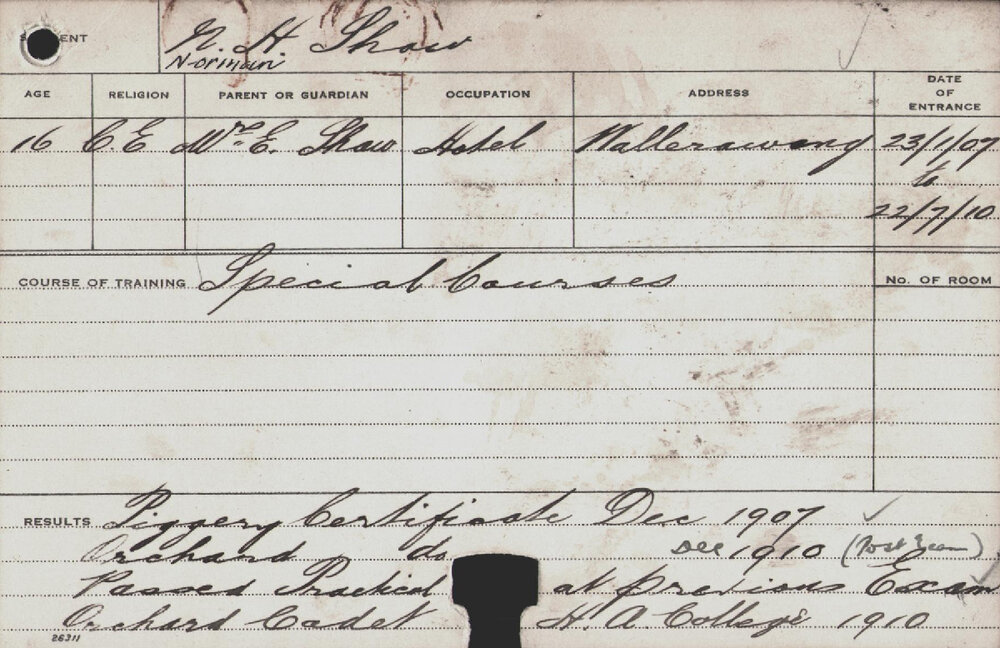 STUDENT N. H. Shaw
Norman
AGE RELIGION PARENT OR GUARDIAN OCCUPATION ADDRESS DATE OF ENTRANCE
16 C.E Mrs E. Shaw Hotel Wallerawang 23/1/07
to
22/7/10
COURSE OF TRAINING Special Courses
No. OF ROOM
RESULTS Piggery Certificate Dec 1907
Orchard do Dec 1910 (Post Exam)
Passed Practical at previous Exam
Orchard Cadet H. A College 1910
26311